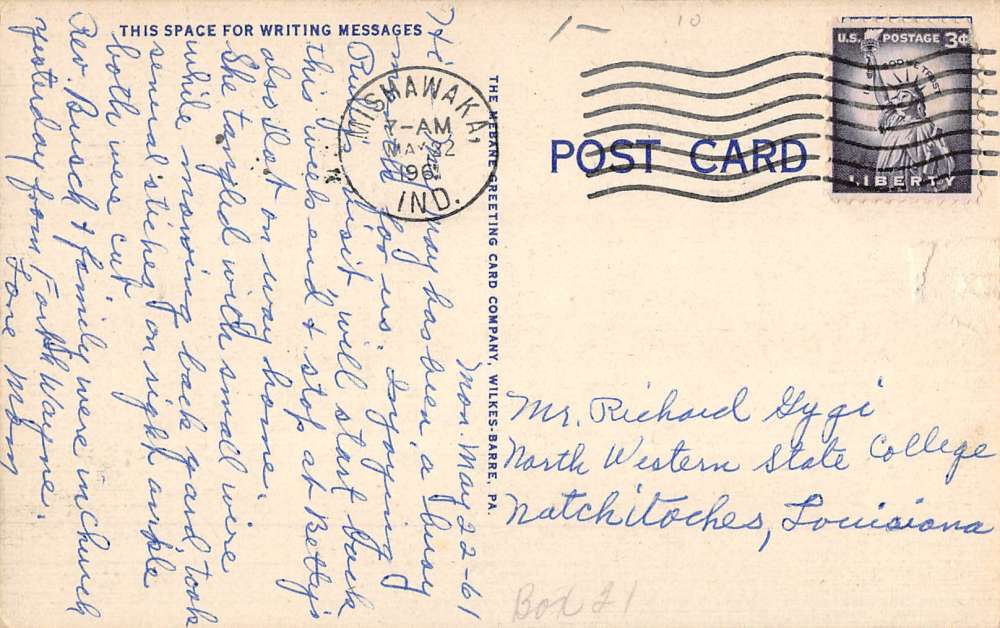 THIS SPACE FOR WRITING MESSAGES
Mon. May 22-61
Hi may has been a busy
month for us. Injoying
Ruth's visit will start back
this week end & stop at Betty's
also Dot on way home.
She tangled with small wire
while mowing back yard took
several stiches on right ankle
both were cut
Rev. Busch & family were in Church
yesterday from Forth Wayne.
Love Mom
THE MEBANE GREETING CARD COMPANY, WILKES-BARRE, PA.
MISHAWAKA,
7-AM
MAY 22
1961
IND.
U.S. POSTAGE 3¢
IN GOD WE TRUST
LIBERTY
POST CARD
Mr. Richard Gygi
North Western State College
Natchitoches, Louisiana
Box 21
10